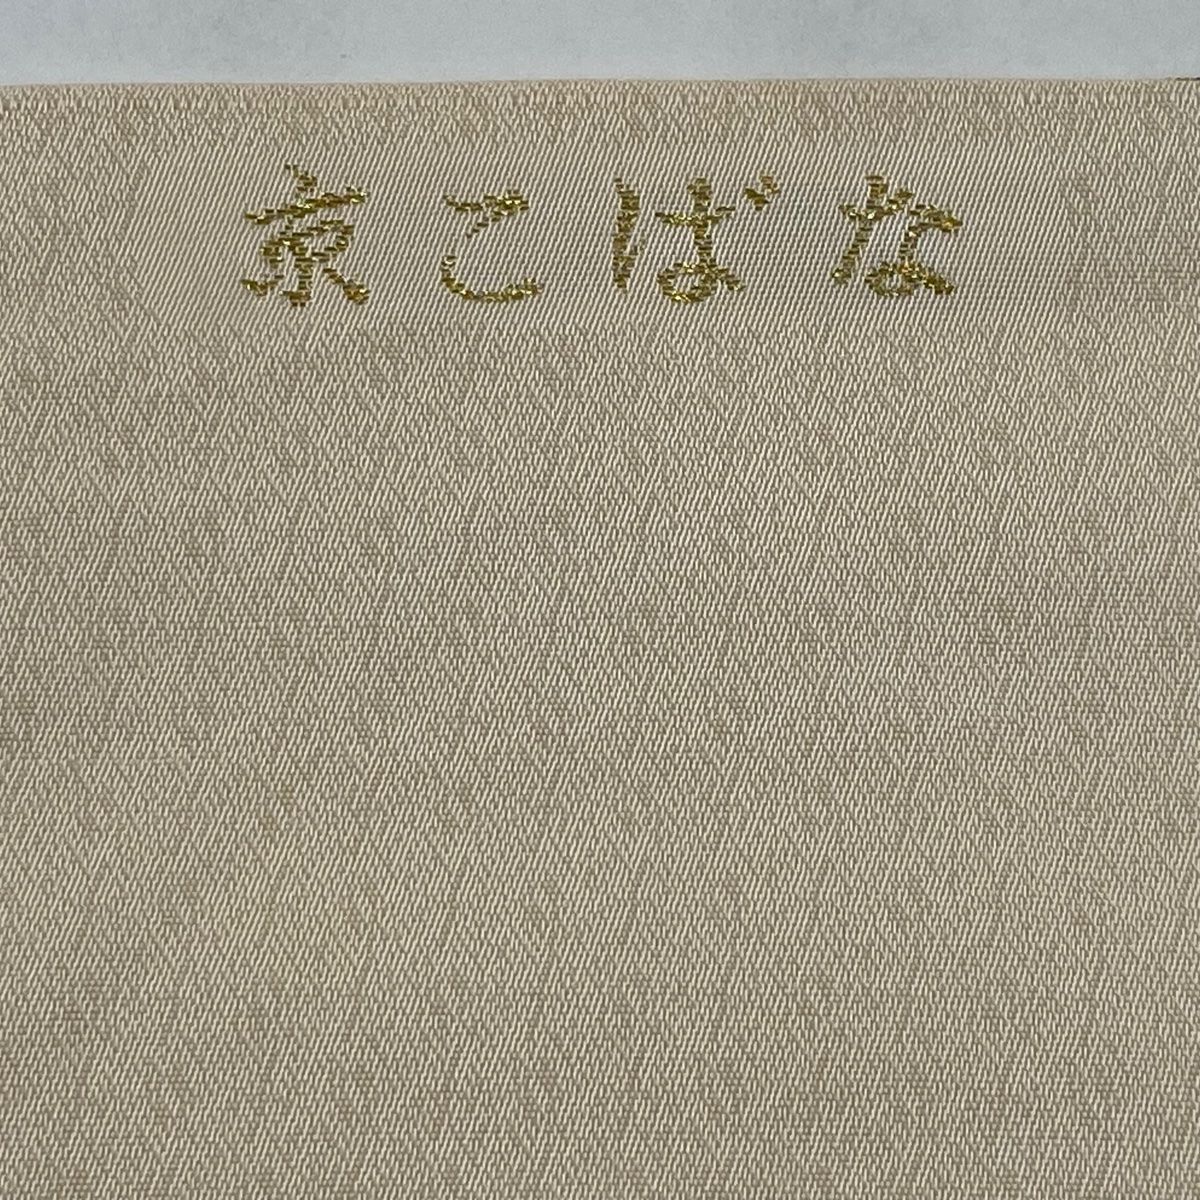 京こばな